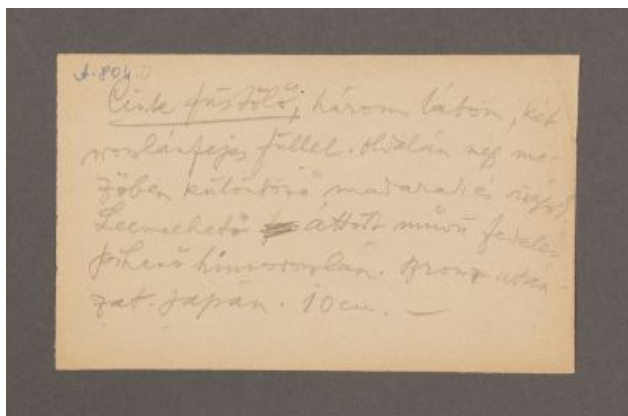 A.804.
Cink füstölő, három lábon, két
oroszlánfejes füllel. Oldalán négy me-
zőben különböző madarak és virágok.
Leemelhető áttört művü fedelén
pihenő hímoroszlán. Bronz után-
zat. Japán. 10 cm. —